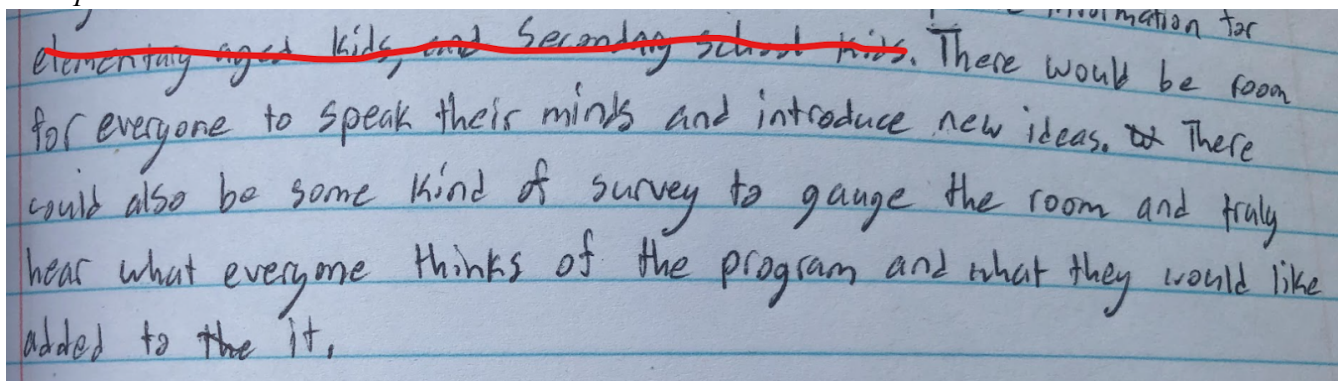 information for
elementary aged kids, and Secondary school kids. There would be room
for everyone to speak their minds and introduce new ideas. There
could also be some kind of survey to gauge the room and truly
hear what everyone thinks of the program and what they would like
added to the it.